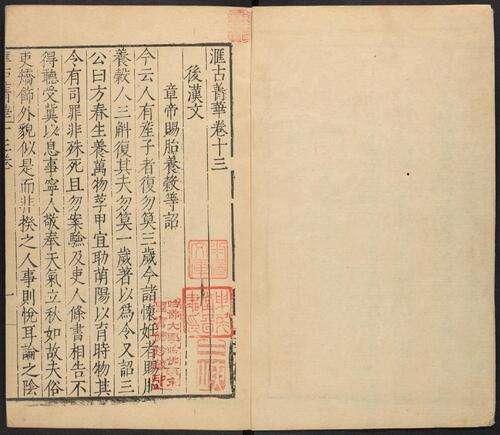 滙古菁華卷十三
後漢文
章帝賜胎養穀等詔
今云人有産子者復勿筭三歲今諸懷姙者賜胎
養穀人三斛復其夫勿筭一歲著以爲令又詔三
公曰方春生養萬物莩甲宜助萌陽以育時物其
令有司罪非殊死且勿案驗及吏人條書相告不
得聽受冀以息事寧人敬奉天氣立秋如故夫俗
吏矯飾外貌似是而非揆之人事則恱耳論之陰